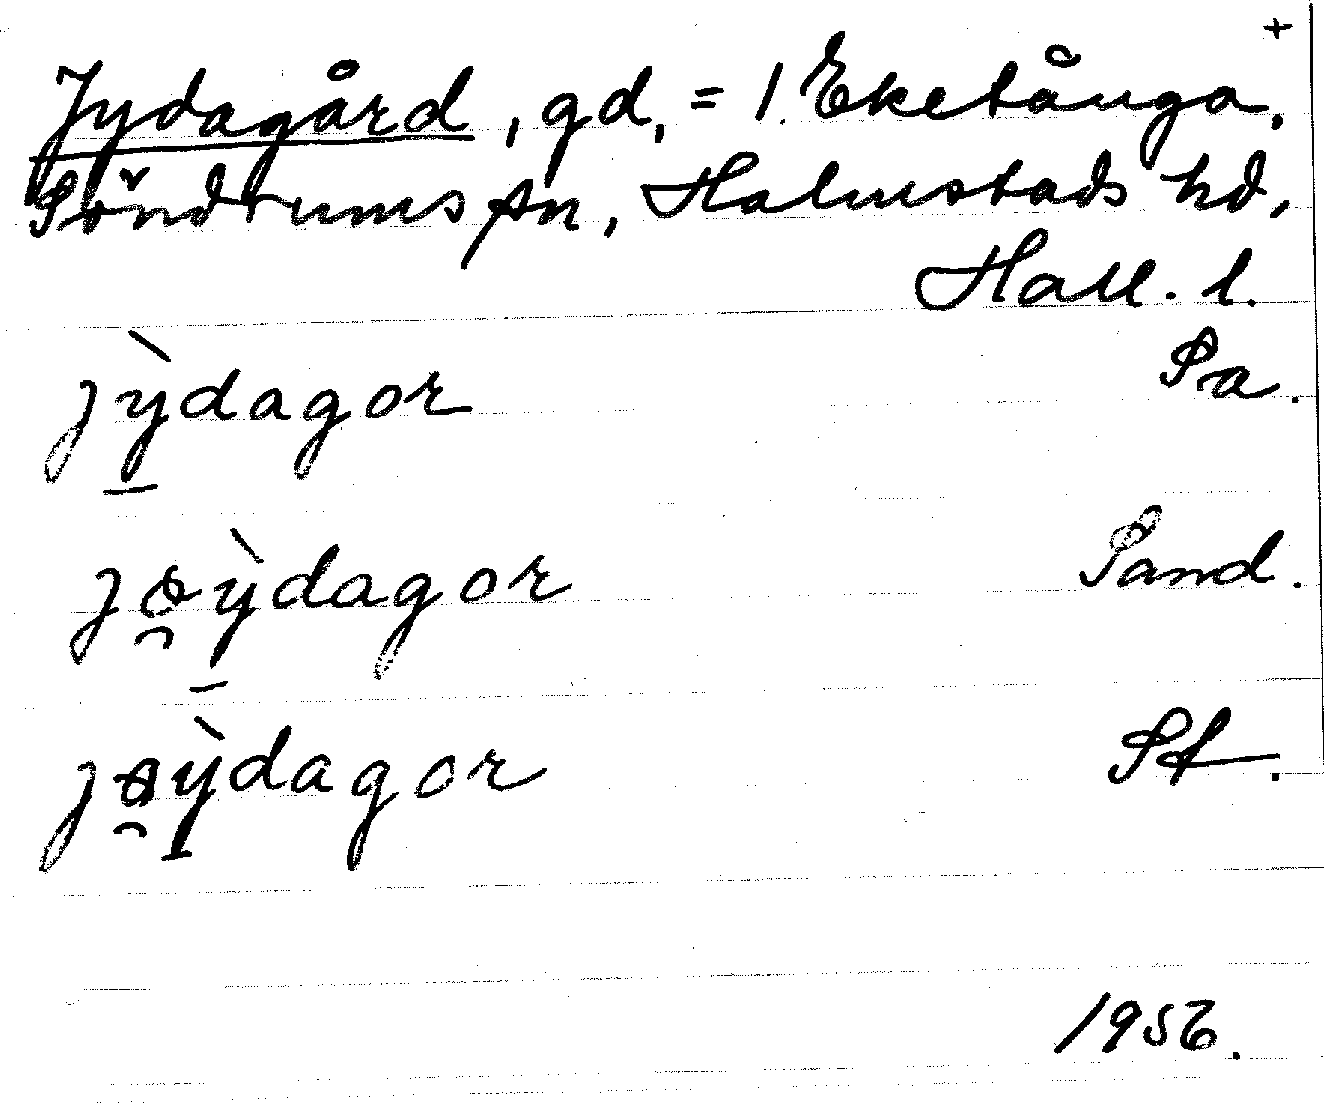 +
Jydagård, gd, = 1. Eketånga,
Söndrums sn, Halmstads hd,
Hall. l.
jỳ̱dagor Pa.
jo̯ỳ̱dagor Sand.
jo̯ỳ̱dagor Pf.
1956.